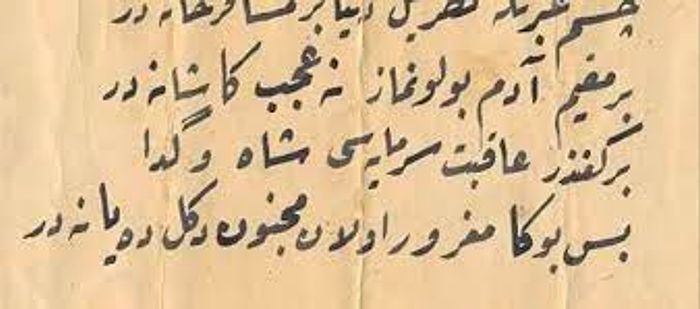 چشم عبرتله نظر قیل دنیا بر مسافرخانه در
بر مقیم آدم بولونماز نه عجب كاشانه در
بر كفندر عاقبت سرمایه‌سی شاه و گدا
بس بوكا مغرور اولان مجنون دكل ده یا نه در